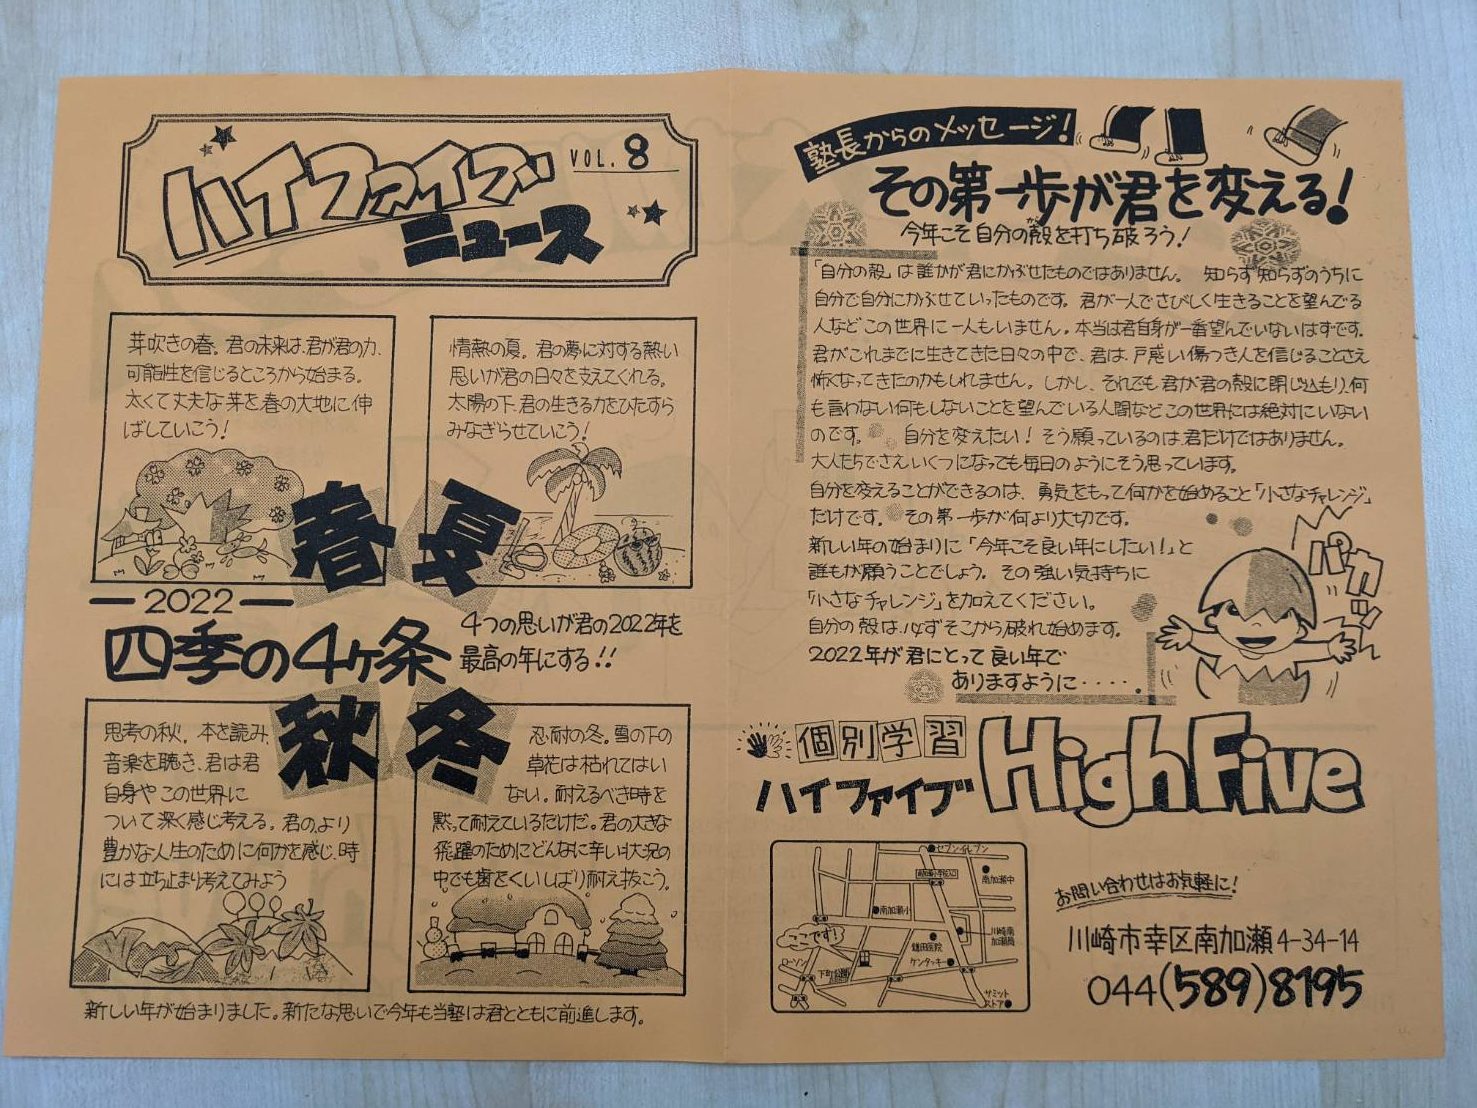 ハイファイブ
VOL. 8
ニュース
芽吹きの春。君の未来は、君が君の力、
可能性を信じるところから始まる。
太くて丈夫な芽を春の大地に伸
ばしていこう!
春
情熱の夏。君の夢に対する熱い
思いが君の日々を支えてくれる。
太陽の下、君の生きる力をひたすら
みなぎらせていこう!
夏
2022
四季の4ヶ条
4つの思いが君の2022年を
最高の年にする!!
思考の秋。本を読み、
音楽を聴き、君は君
自身やこの世界に
ついて深く感じ考える。君の、より
豊かな人生のために何かを感じ、時
には立ち止まり考えてみよう
秋
冬
忍耐の冬。雪の下の
草花は枯れてはい
ない。耐えるべき時を
黙って耐えているだけだ。君の大きな
飛躍のためにどんなに辛い状況の
中でも歯をくいしばり耐え抜こう。
新しい年が始まりました。新たな思いで今年も当塾は君とともに前進します。
塾長からのメッセージ!
その第一歩が君を変える!
今年こそ自分の殻を打ち破ろう!
「自分の殻」は誰かが君にかぶせたものではありません。 知らず知らずのうちに
自分で自分にかぶせていったものです。君が一人でさびしく生きることを望んでる
人などこの世界に一人もいません。本当は君自身が一番望んでいないはずです。
君がこれまでに生きてきた日々の中で、君は、戸惑い傷つき人を信じることさえ
怖くなってきたのかもしれません。しかし、それでも君が君の殻に閉じ込もり、何
も言わない何もしないことを望んでいる人間などこの世界には絶対にいない
のです。 自分を変えたい!そう願っているのは君だけではありません。
大人たちでさえいくつになっても毎日のようにそう思っています。
自分を変えることができるのは、勇気をもって何かを始めること「小さなチャレンジ」
だけです。その第一歩が何より大切です。
新しい年の始まりに「今年こそ良い年にしたい!」と
誰もが願うことでしょう。その強い気持ちに
「小さなチャレンジ」を加えてください。
自分の殻は、必ずそこから破れ始めます。
2022年が君にとって良い年で
ありますように‥‥.
パカッ
個別学習
ハイファイブ HighFive
セブンイレブン
南加瀬中
南加瀬小
川崎南
加瀬局
ここです!
鎌田医院
ケンタッキー
ローソン
サミット
ストア
お問い合わせはお気軽に!
川崎市幸区南加瀬4-34-14
044(589)8195